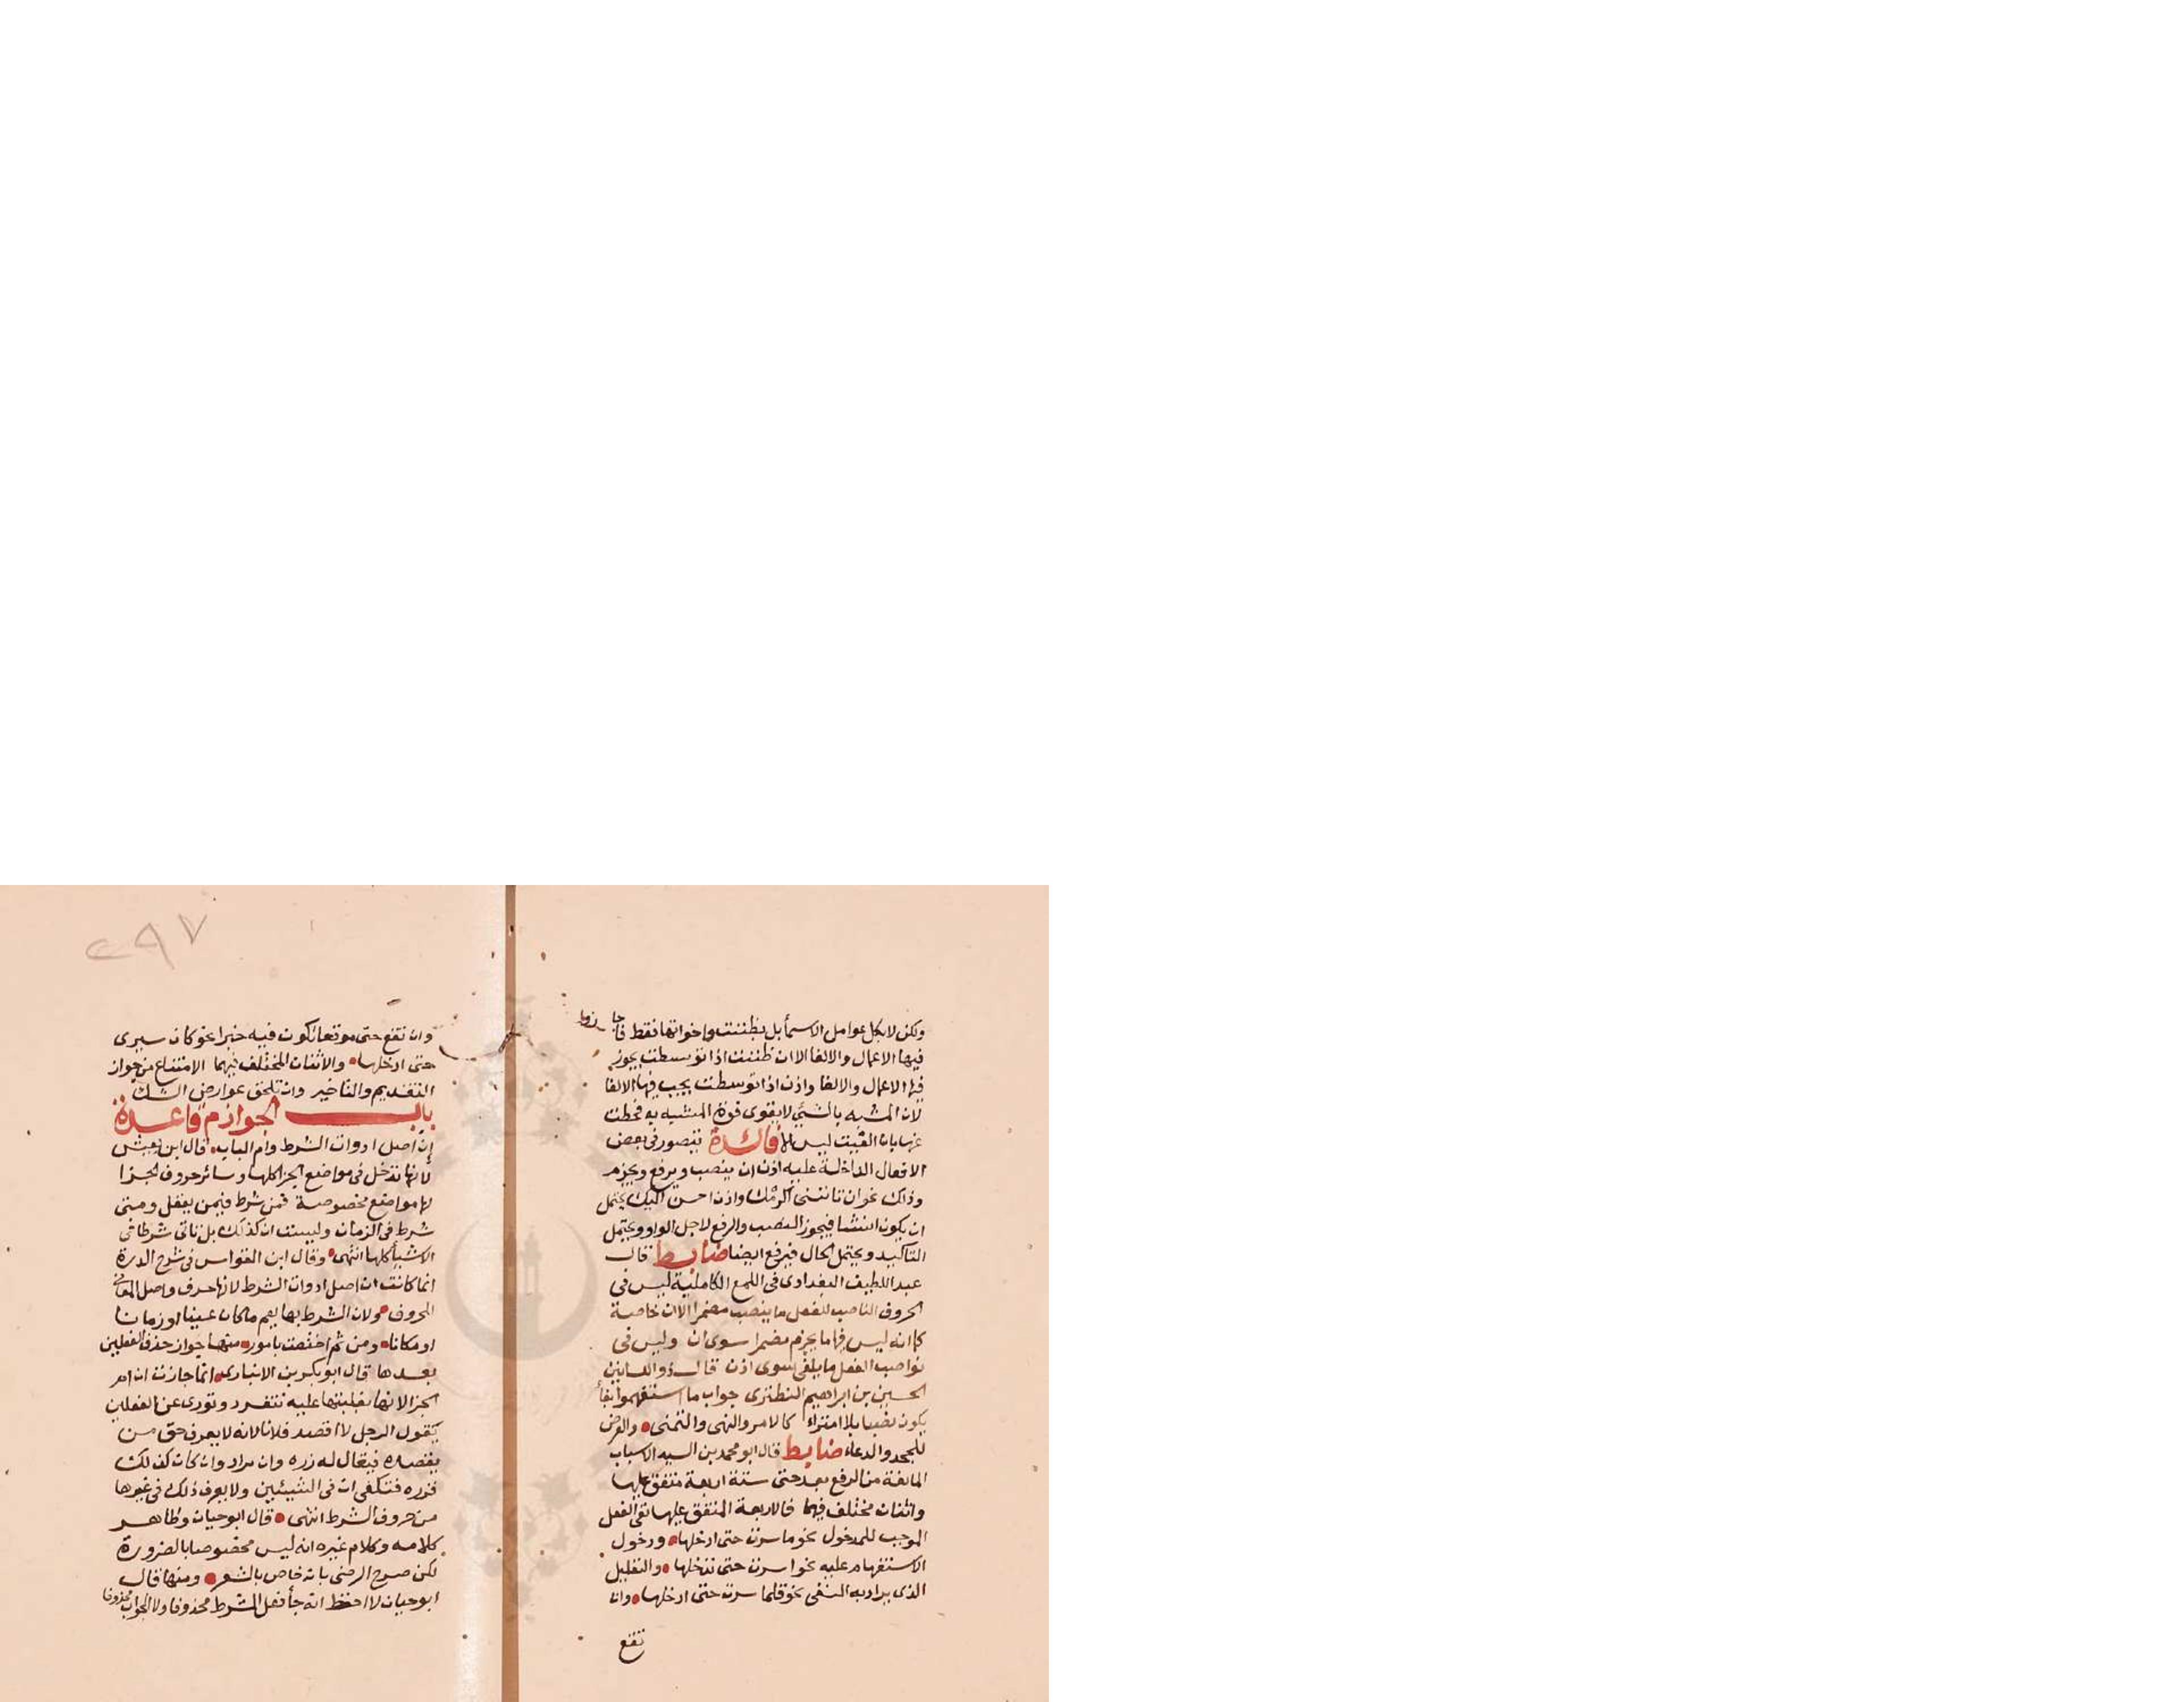 ولكن لا بكل عوامل الاسمأ بل بظننت واخواتها فقط فاجازوا
فيها الاعمال والالغا الا ان ظننت اذا توسطت يجوز
فيها الاعمال والالغا واذن اذا توسطت يجب فيها الالغا
لان المشبه بالشئ لا يقوى قوة المشبه به فحطت
عنها بان الغيت ليس الا فائدة يتصور فى بعض
الافعال الداخلة عليه اذن ان ينصب ويرفع ويجزم
وذلك نحو ان تاتنى اكرمك واذن احسن اليك يحتمل
ان يكون انشا فيجوز النصب والرفع لاجل الواو ويحتمل
التاكيد ويحتمل الحال فيرفع ايضا ضابط قال
عبد اللطيف البغدادى فى اللمع الكاملية ليس فى
الحروف الناصب للفعل ما ينصب مضمرا الا ان خاصة
كما انه ليس فيها ما يجزم مضمرا سوى ان وليس فى
نواصب الفعل ما يلغى سوى اذن قال ذو اللسانين
الحسين بن ابراهيم النطنزى جواب ما استفهموا بفأ
يكون نصبا بلا امتراء كالامر والنهى والتمنى والعرض
للجحد والدعاء ضابط قال ابو محمد بن السيد الاسباب
المانعة من الرفع بعد حتى ستة اربعة متفق عليها
واثنان مختلف فيهما فالاربعة المتفق عليها نفى الفعل
الموجب للدخول نحو ما سرت حتى ادخلها ودخول
الاستفهام عليه نحو اسرت حتى تدخلها والتقليل
الذى يراد به النفى نحو قلما سرت حتى ادخلها وان
تقع
٢٩٧
وان تقع حتى موقعا تكون فيه خبرا نحو كان سيرى
حتى ادخلها والاثنان المختلف فيهما الامتناع من جواز
التقديم والتاخير وان تلحق عوارض الشك
باب الجوازم قاعدة
إن اصل ادوات الشرط وام الباب قال ابن يعيش
لانها تدخل فى مواضع الجزا كلها وسائر حروف الجزا
لها مواضع مخصوصة فمن شرط فيمن يعقل ومتى
شرط فى الزمان وليست ان كذلك بل تاتى شرطا فى
الاشيأ كلها انتهى وقال ابن القواس فى شرح الدرة
انما كانت ان اصل ادوات الشرط لانها حرف واصل المعانى
الحروف ولان الشرط بها يعم ما كان عينا او زمانا
او مكانا ومن ثم اختصت بامور منها جواز حذف الفعلين
بعدها قال ابو بكر بن الانبارى انما جازت ان ام
الجزا لانها بغلبتها عليه تنفرد وتودى عن الفعلين
يقول الرجل لا اقصد فلانا لانه لا يعرف حق من
يقصده فيقال له زره وان يراد وان كان كذلك
فزره فتكفى ان فى الشيئين ولا يعرف ذلك فى غيرها
من حروف الشرط انتهى قال ابو حيان وظاهر
كلامه وكلام غيره انه ليس مخصوصا بالضرورة
لكن صرح الرضى بانه خاص بالشعر ومنها قال
ابو حيان لا احفظ انه جأ فعل الشرط محذوفا ولا الجواب محذوفا